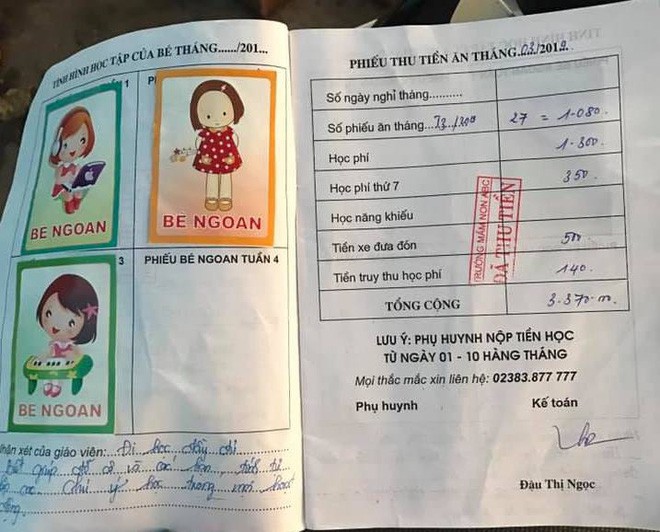 TÌNH HÌNH HỌC TẬP CỦA BÉ THÁNG....../201...
1
BÉ NGOAN
BÉ NGOAN
3
PHIẾU BÉ NGOAN TUẦN 4
BÉ NGOAN
Nhận xét của giáo viên: Đi học đầy đủ
giúp đỡ cô và các bạn
Chú ý học trong mọi hoạt
động
PHIẾU THU TIỀN ĂN THÁNG.03./2019.
Số ngày nghỉ tháng..........
Số phiếu ăn tháng 27 = 1.080.
Học phí 1.300.
Học phí thứ 7 350.
Học năng khiếu
Tiền xe đưa đón 500
Tiền truy thu học phí 140.
TỔNG CỘNG 3.370.
TRƯỜNG MẦM NON ABC
ĐÃ THU TIỀN
LƯU Ý: PHỤ HUYNH NỘP TIỀN HỌC
TỪ NGÀY 01 - 10 HÀNG THÁNG
Mọi thắc mắc xin liên hệ: 02383.877 777
Phụ huynh Kế toán
Đậu Thị Ngọc